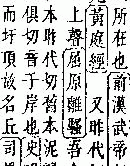 所在也前漢武帝
黃庭經　又昨代
上聲屈原離騷吾
本昨代切始本泥
俱切吾子岸也史
而圩頂故名丘司